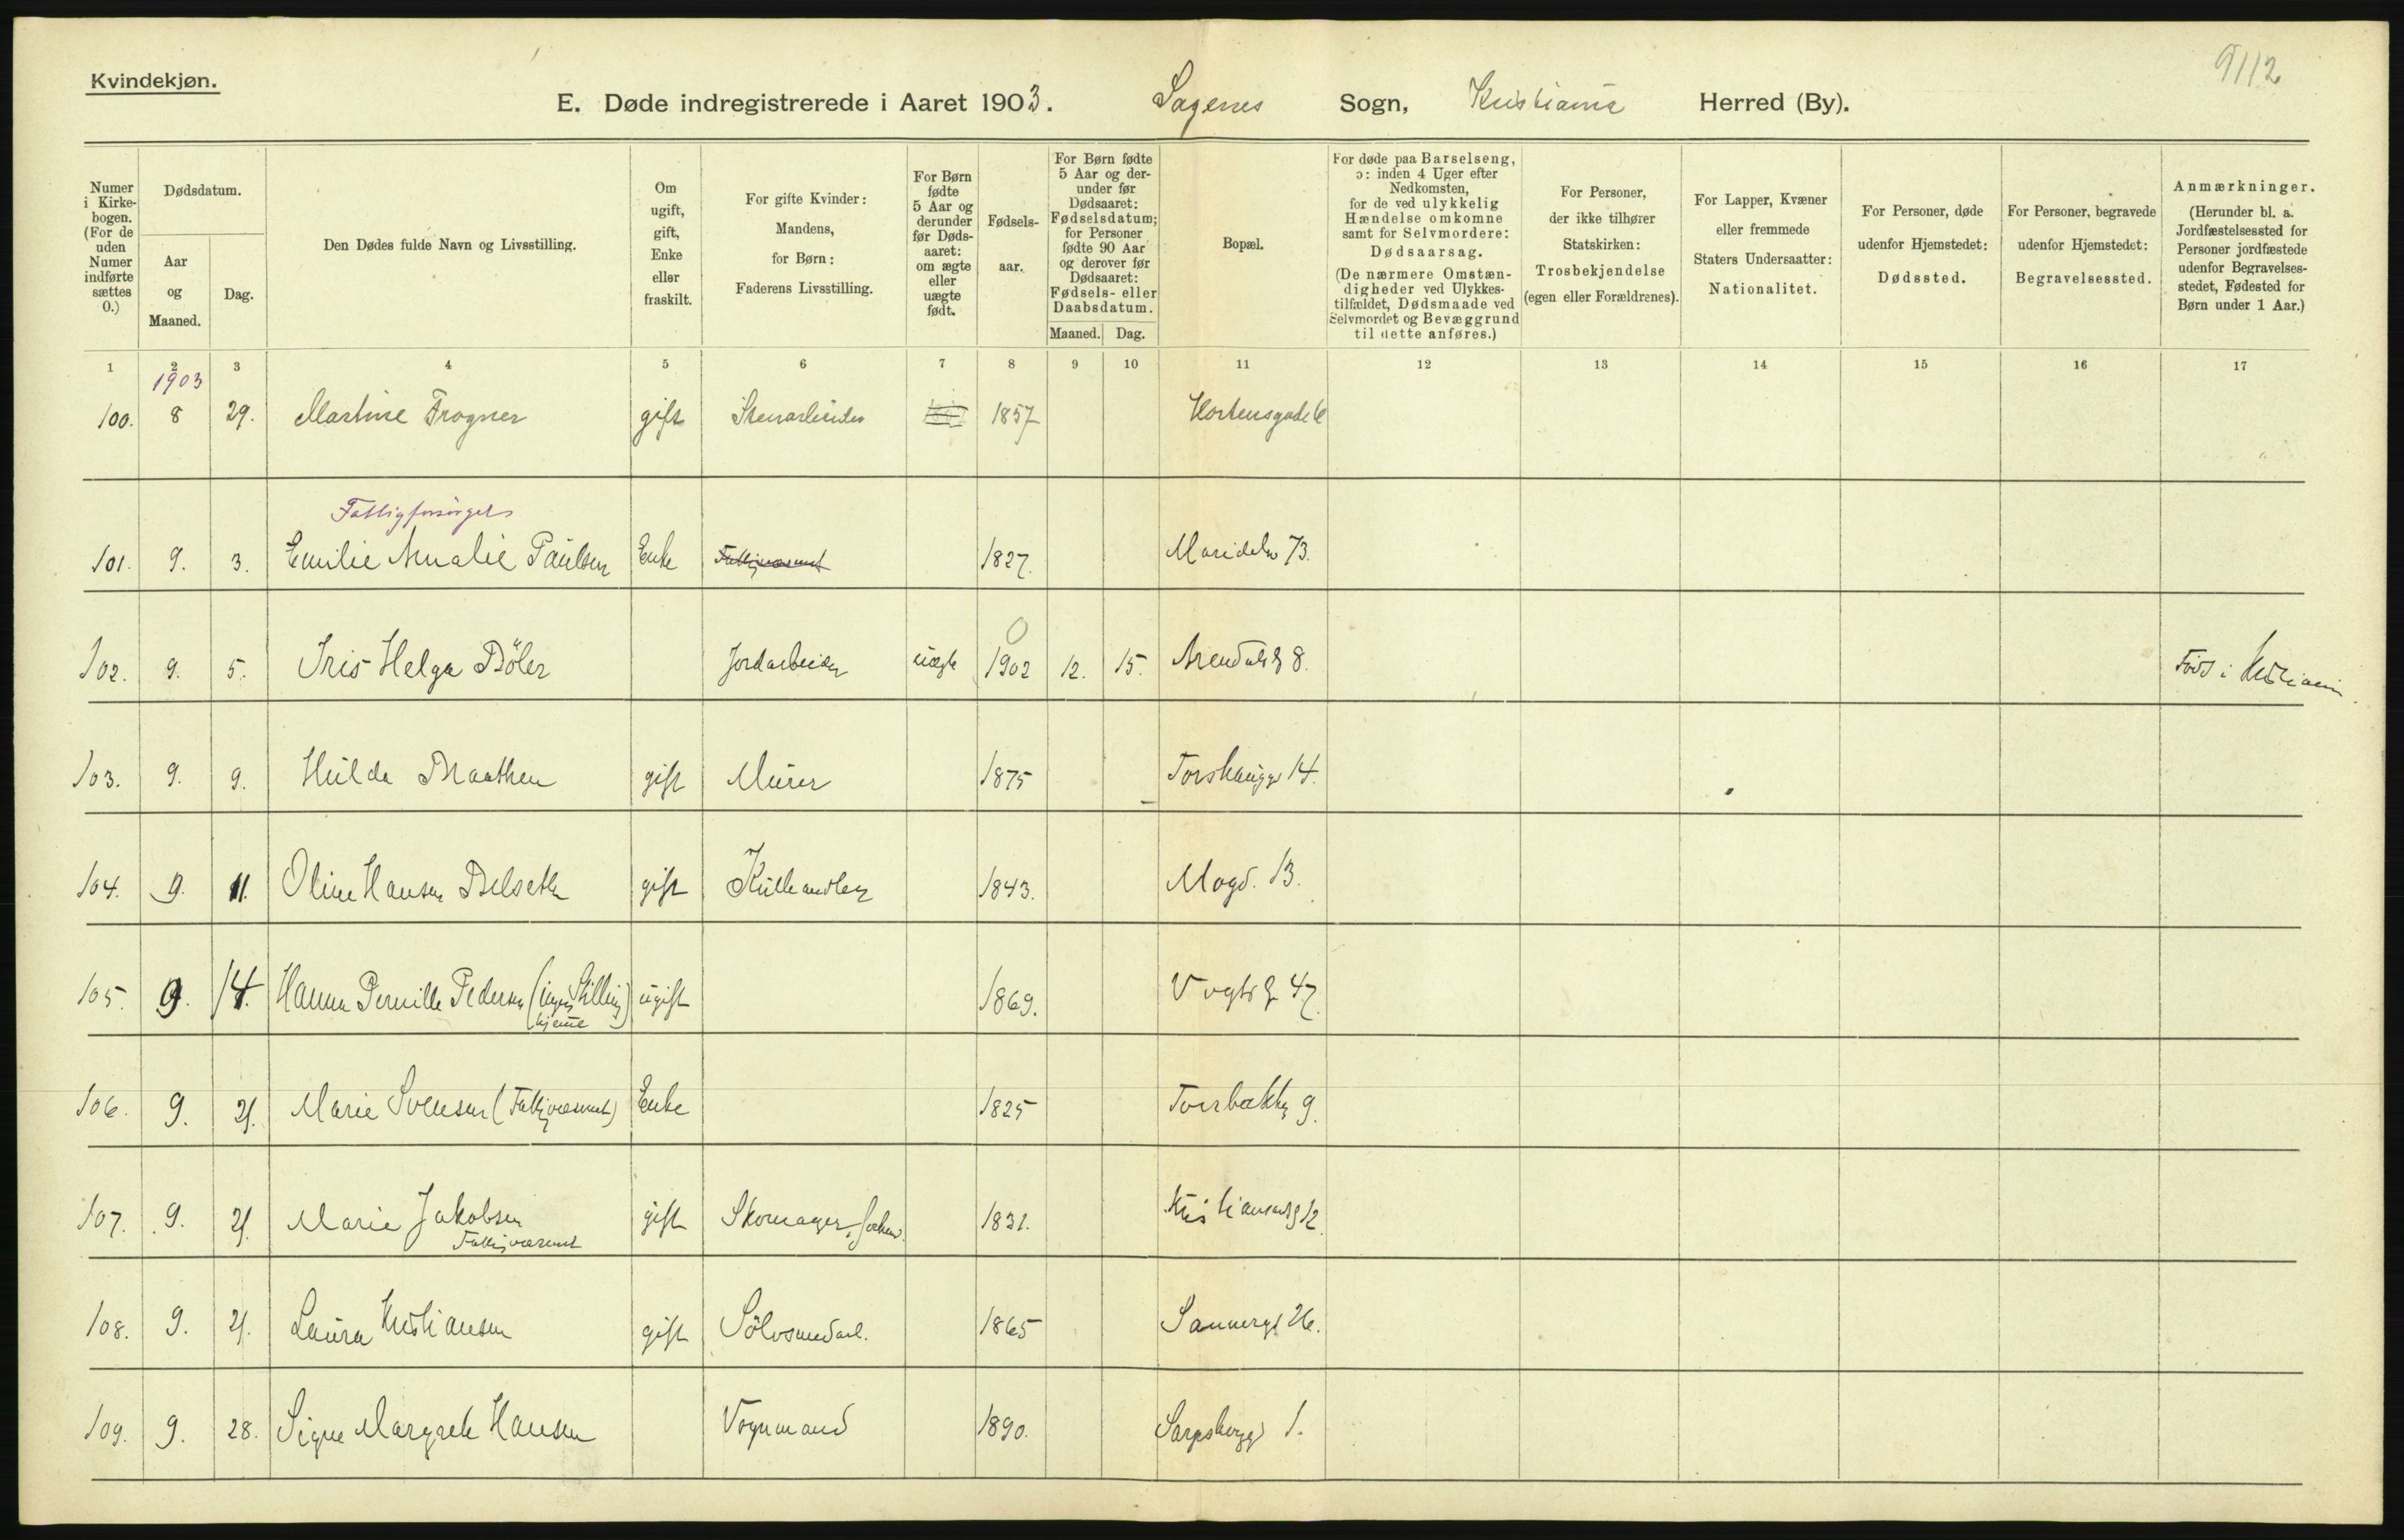 9112
Kvindekjøn.
E. Døde indregistrerede i Aaret 1903. Sagenes Sogn, Kristiania Herred (By).
Numer i Kirkebogen. (For de uden Numer indførte sættes 0.)
Dødsdatum.
Aar og Maaned.
Dag.
Den Dødes fulde Navn og Livsstilling.
Om ugift, gift, Enke eller fraskilt.
For gifte Kvinder: Mandens, for Børn: Faderens Livsstilling.
For Børn fødte 5 Aar og derunder før Dødsaaret: om ægte eller uægte født.
Fødselsaar.
For Børn fødte 5 Aar og derunder før Dødsaaret: Fødselsdatum; for Personer fødte 90 Aar og derover før Dødsaaret: Fødsels- eller Daabsdatum.
Maaned. Dag.
Bopæl.
For døde paa Barselseng, ɔ: inden 4 Uger efter Nedkomsten, for de ved ulykkelig Hændelse omkomne samt for Selvmordere: Dødsaarsag. (De nærmere Omstændigheder ved Ulykkestilfældet, Dødsmaade ved Selvmordet og Bevæggrund til dette anføres.)
For Personer, der ikke tilhører Statskirken: Trosbekjendelse (egen eller Forældrenes).
For Lapper, Kvæner eller fremmede Staters Undersaatter: Nationalitet.
For Personer, døde udenfor Hjemstedet: Dødssted.
For Personer, begravede udenfor Hjemstedet: Begravelsessted.
Anmærkninger. (Herunder bl. a. Jordfæstelsessted for Personer jordfæstede udenfor Begravelsesstedet, Fødested for Børn under 1 Aar.)
1 2 3 4 5 6 7 8 9 10 11 12 13 14 15 16 17
1903
100. 8 29. Martine Frogner gift Stenarbeider 1857 Hortensgade 6
Fattigforsørget
101. 9. 3. Emilie Amalie Paulsen Enke Fattigvæsenet 1827. Maridalsv 73.
0
102. 9. 5. Iris Helga Bøler Jordarbeider uægte 1902 12. 15. Arendalsg 8. Född i Kristiania
103. 9. 9. Hulda Braathen gift Murer 1875 Torshauggd 14.
104. 9. 11. Oline Hansen Belseth gift Kulhandler 1843. Mogd. 13.
105. 9. 14. Hanna Pernille Pedersen (ingen Stilling) ugift 1869. Vogtsg 47.
hjemme
106. 9. 21. Marie Svensen (Fattigvæsenet) Enke 1825 Torvbakkg 9.
107. 9. 21. Marie Jakobsen gift Skomager 1831. Kristiansandsg 12.
Fattigvæsenet
108. 9. 21. Laura Kristiansen gift Sölvsmedarb. 1865 Sannergd 26.
109. 9. 28. Signe Margrete Hansen Vognmand 1890. Sarpsborggd 1.